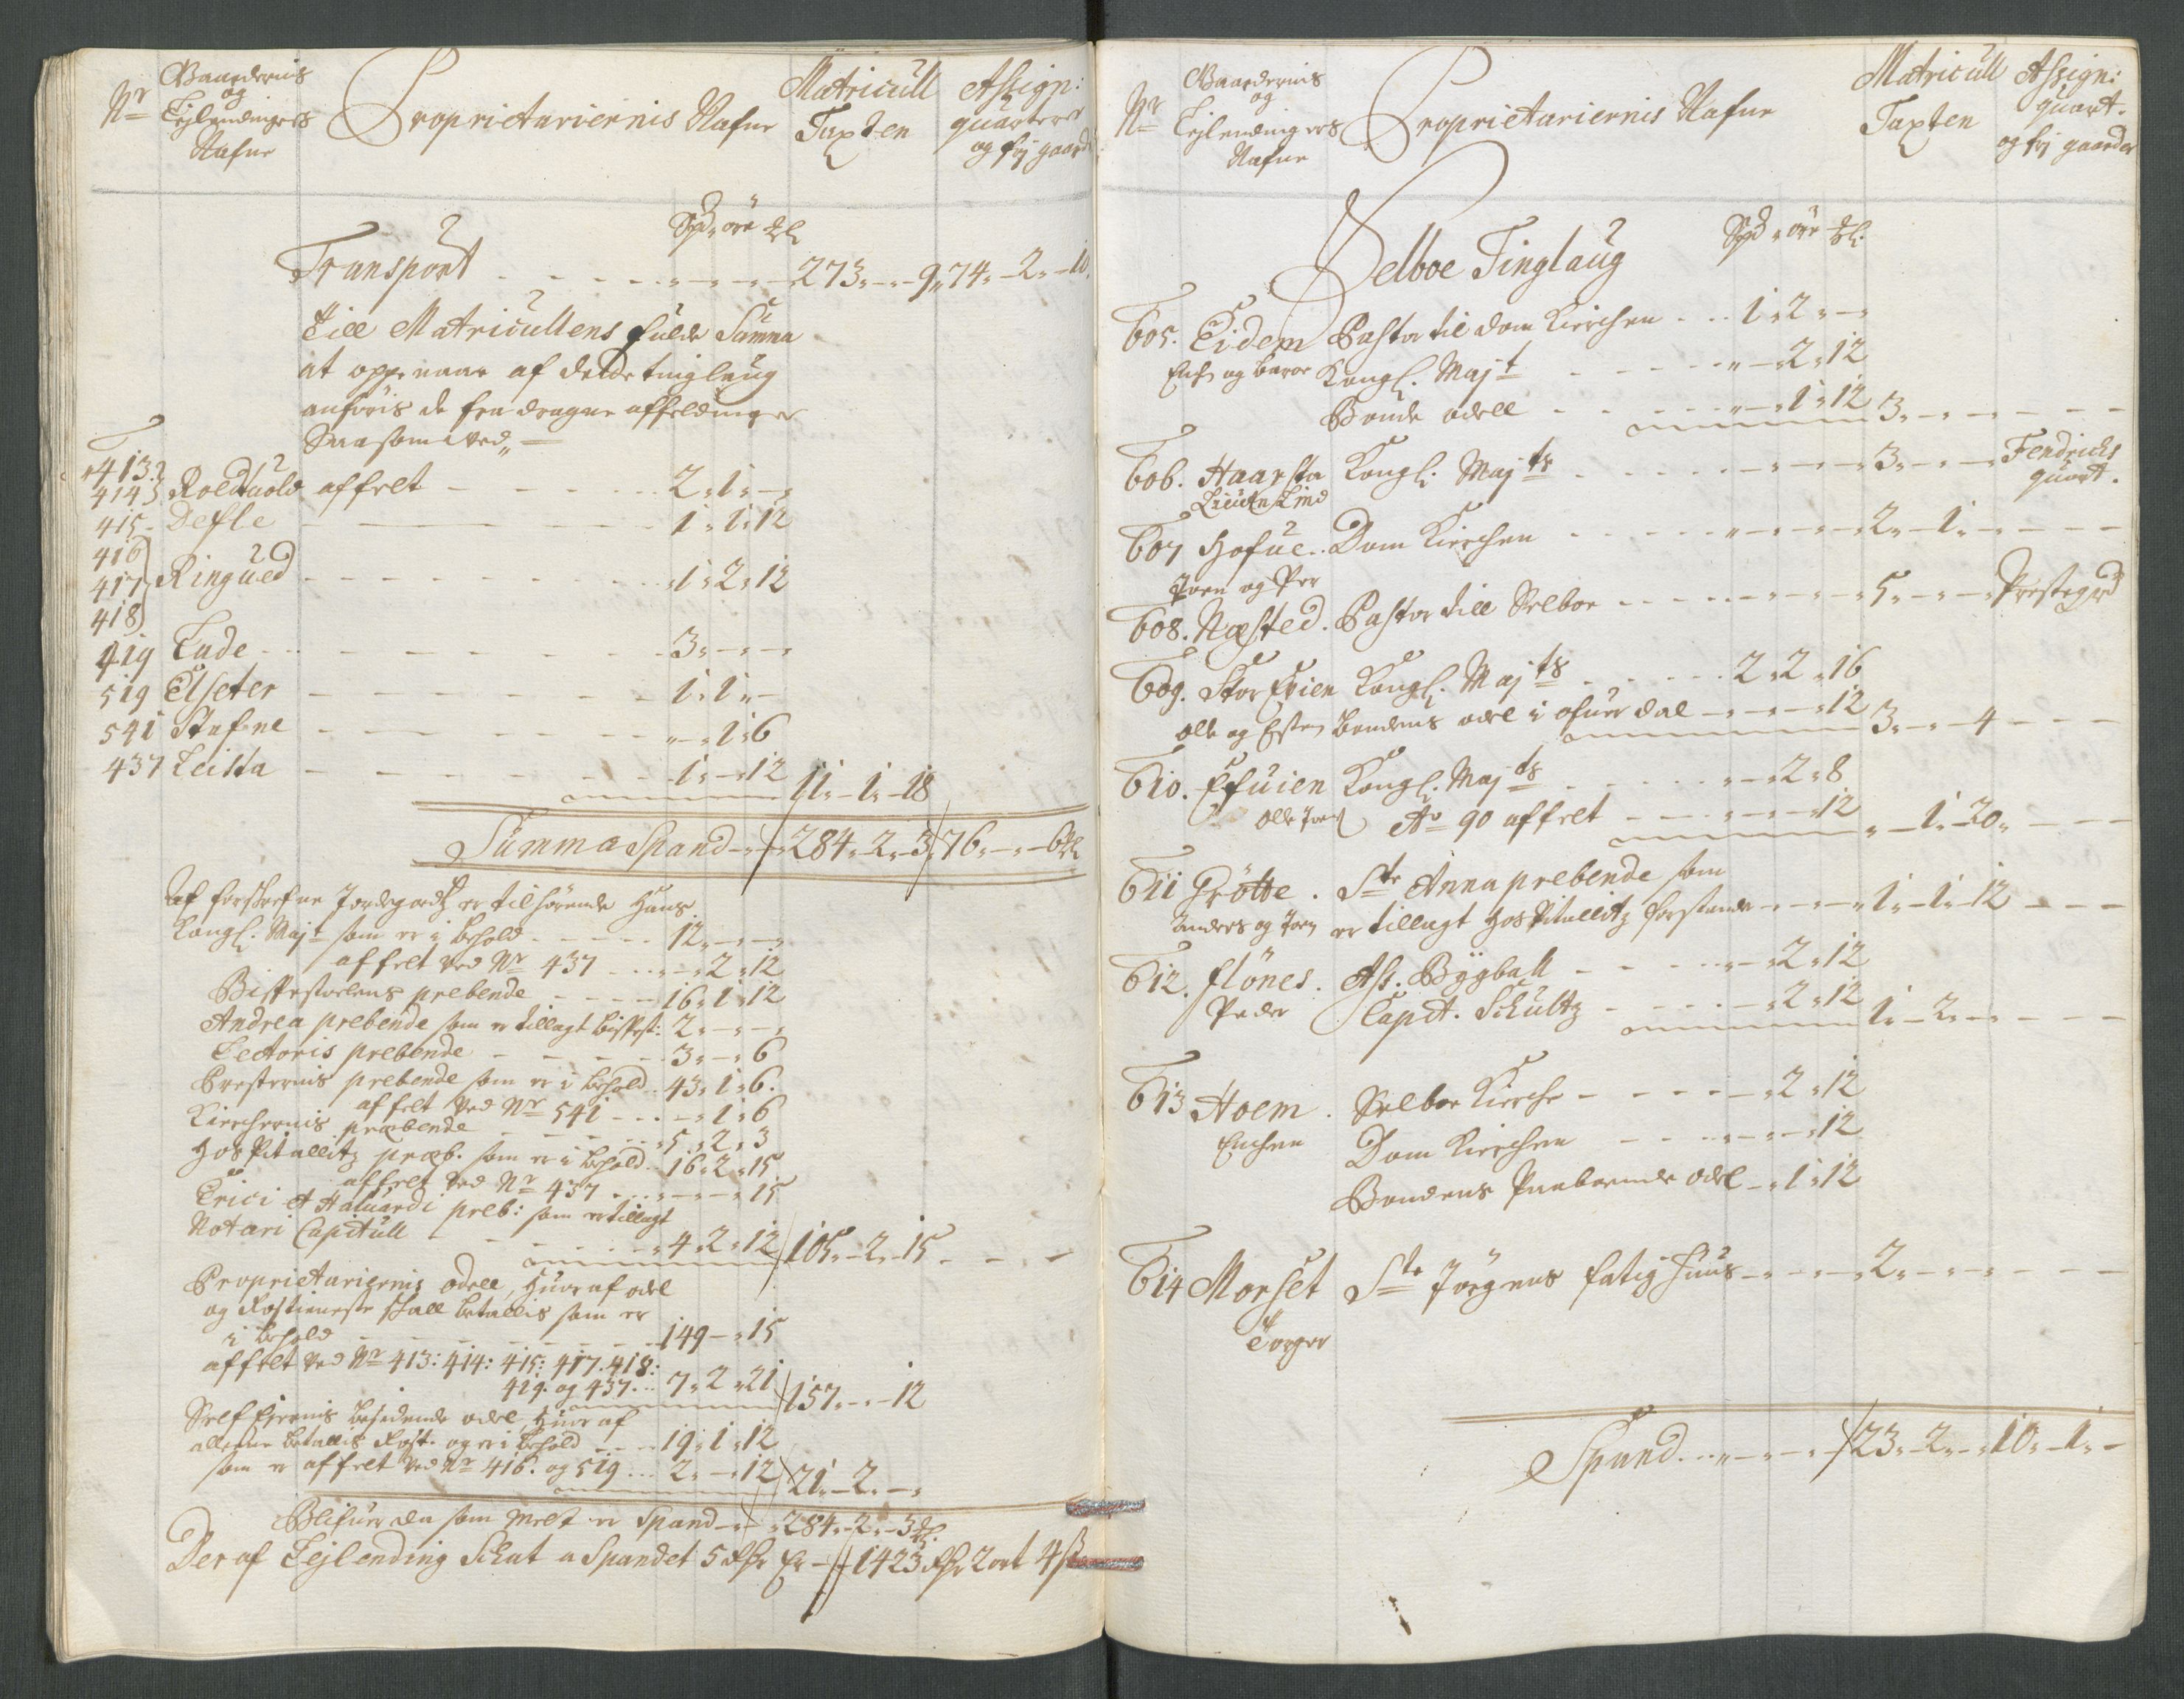 Nr Gaardernis og Lejlendingers Nafne Proprietariernis Nafne Matricull Taxten Assign: quarterer og frj gaarde
Spd, øre ℳl
Transport - - - - 273 - - 9 74 - 2 - 10
Till Matricullens fulde Summa
at oppe naar af dette tinglaug
anføris de fra dragne affeldninger
Saasom ved
413
414 Roedtuold affelt - - - 2 1 -
415 Defle - - - 1 1 12
416
417 Ringued - - - 1 2 12
418
419 Lade - - - 3 - -
519 Elseter - - - 1 1 -
541 Stafne - - - - 1 6
437 Leista - - - 1 - 12 11 - 1 - 18
Summa Spand - 284 - 2 - 3 76 - - 6
Af forskrefne Jordegods er tilhørende Hans
Kongl. Majt som er i behold - - - 12 - -
affelt ved Nr 437 - - - 2 12
Bispestoelens prebende - - - 16 1 12
Andrea prebende som er tillagt bispest: 2 - -
Lectoris prebende - - - 3 - 6
Presternis prebende som er i behold 43 1 6
affelt ved Nr 541 - - - 1 6
Kirchernis præbende - - - 5 2 3
Hospitallitz præb. som er i behold 16 2 15
affelt ved Nr 437 - - - - 15
Erici et Haluardi preb: som er tillagt
Notari Capitull - - - 4 2 12 105 - 2 - 15
Proprietariernis odell, Huoraf odel
og Rostieneste skall betallis som er
i behold - - - 149 - 15
affelt ved Nr 413: 414: 415: 417. 418:
419. og 437. 7 2 21 157 - - 12
Selfejernis besidende odel, Huoraf
allene betallis Rost. og er i behold 19 1 12
som er affelt ved Nr 416. og 519 2 - 12 21 - 2 - -
Blifuer da som melt er Spand 284 - 2 - 3
Deraf Lejlending Schat a Spandet 5 Rdr Er 1423 Rdr 2 ort 4 ß
Nr Gaardernis og Lejlendingers Nafne Proprietariernis Nafne Matricull Taxten Assign: quart. og frj gaarder
Selboe Tinglaug Spd, øre ℳl
605. Eidem Pastor til dom Kirchen 1 2 -
Ench og Baroe Kongl. Majt - - - 2 12
Bonde odell - - - 1 12 3 - -
606. Haarsta Kongl. Majts - - - 3 - - Fendrichs quart.
Lieutn Lind
607 Hofue. Dom Kirchen - - - 2 - 1 -
Joen og Per
608. Næsted. Pastor till Selboe - - - 5 - - Prestegrd
609. Stor Evien Kongl. Majts - - - 2 2 16
Olle og Esten bondens odel i ofuerdal - - 12 3 - - 4
610. Efuien Kongl. Majts - - - 2 8
Olle Joen Ao 90 affelt - - - 12 - 1 - 20
611 Grøtte. Ste Anna prebende som
Anders og Joen er tillagt Hospitallitz forstander - - 1 - 1 - 12
612. Flönes. Ass. Bygball - - - 2 12
Peder Capit. Schultz - - - 2 12 1 - 2 - -
613 Hoem. Selboe Kirche - - - 2 12
Enchen Dom Kirchen - - - - 12
Bondens Paaboende odel - 1 12
614 Morset Ste Jørgens fatig Huus - - - 2 - -
Torger
Spand - - - 23 - 2 - 10 - 1 -